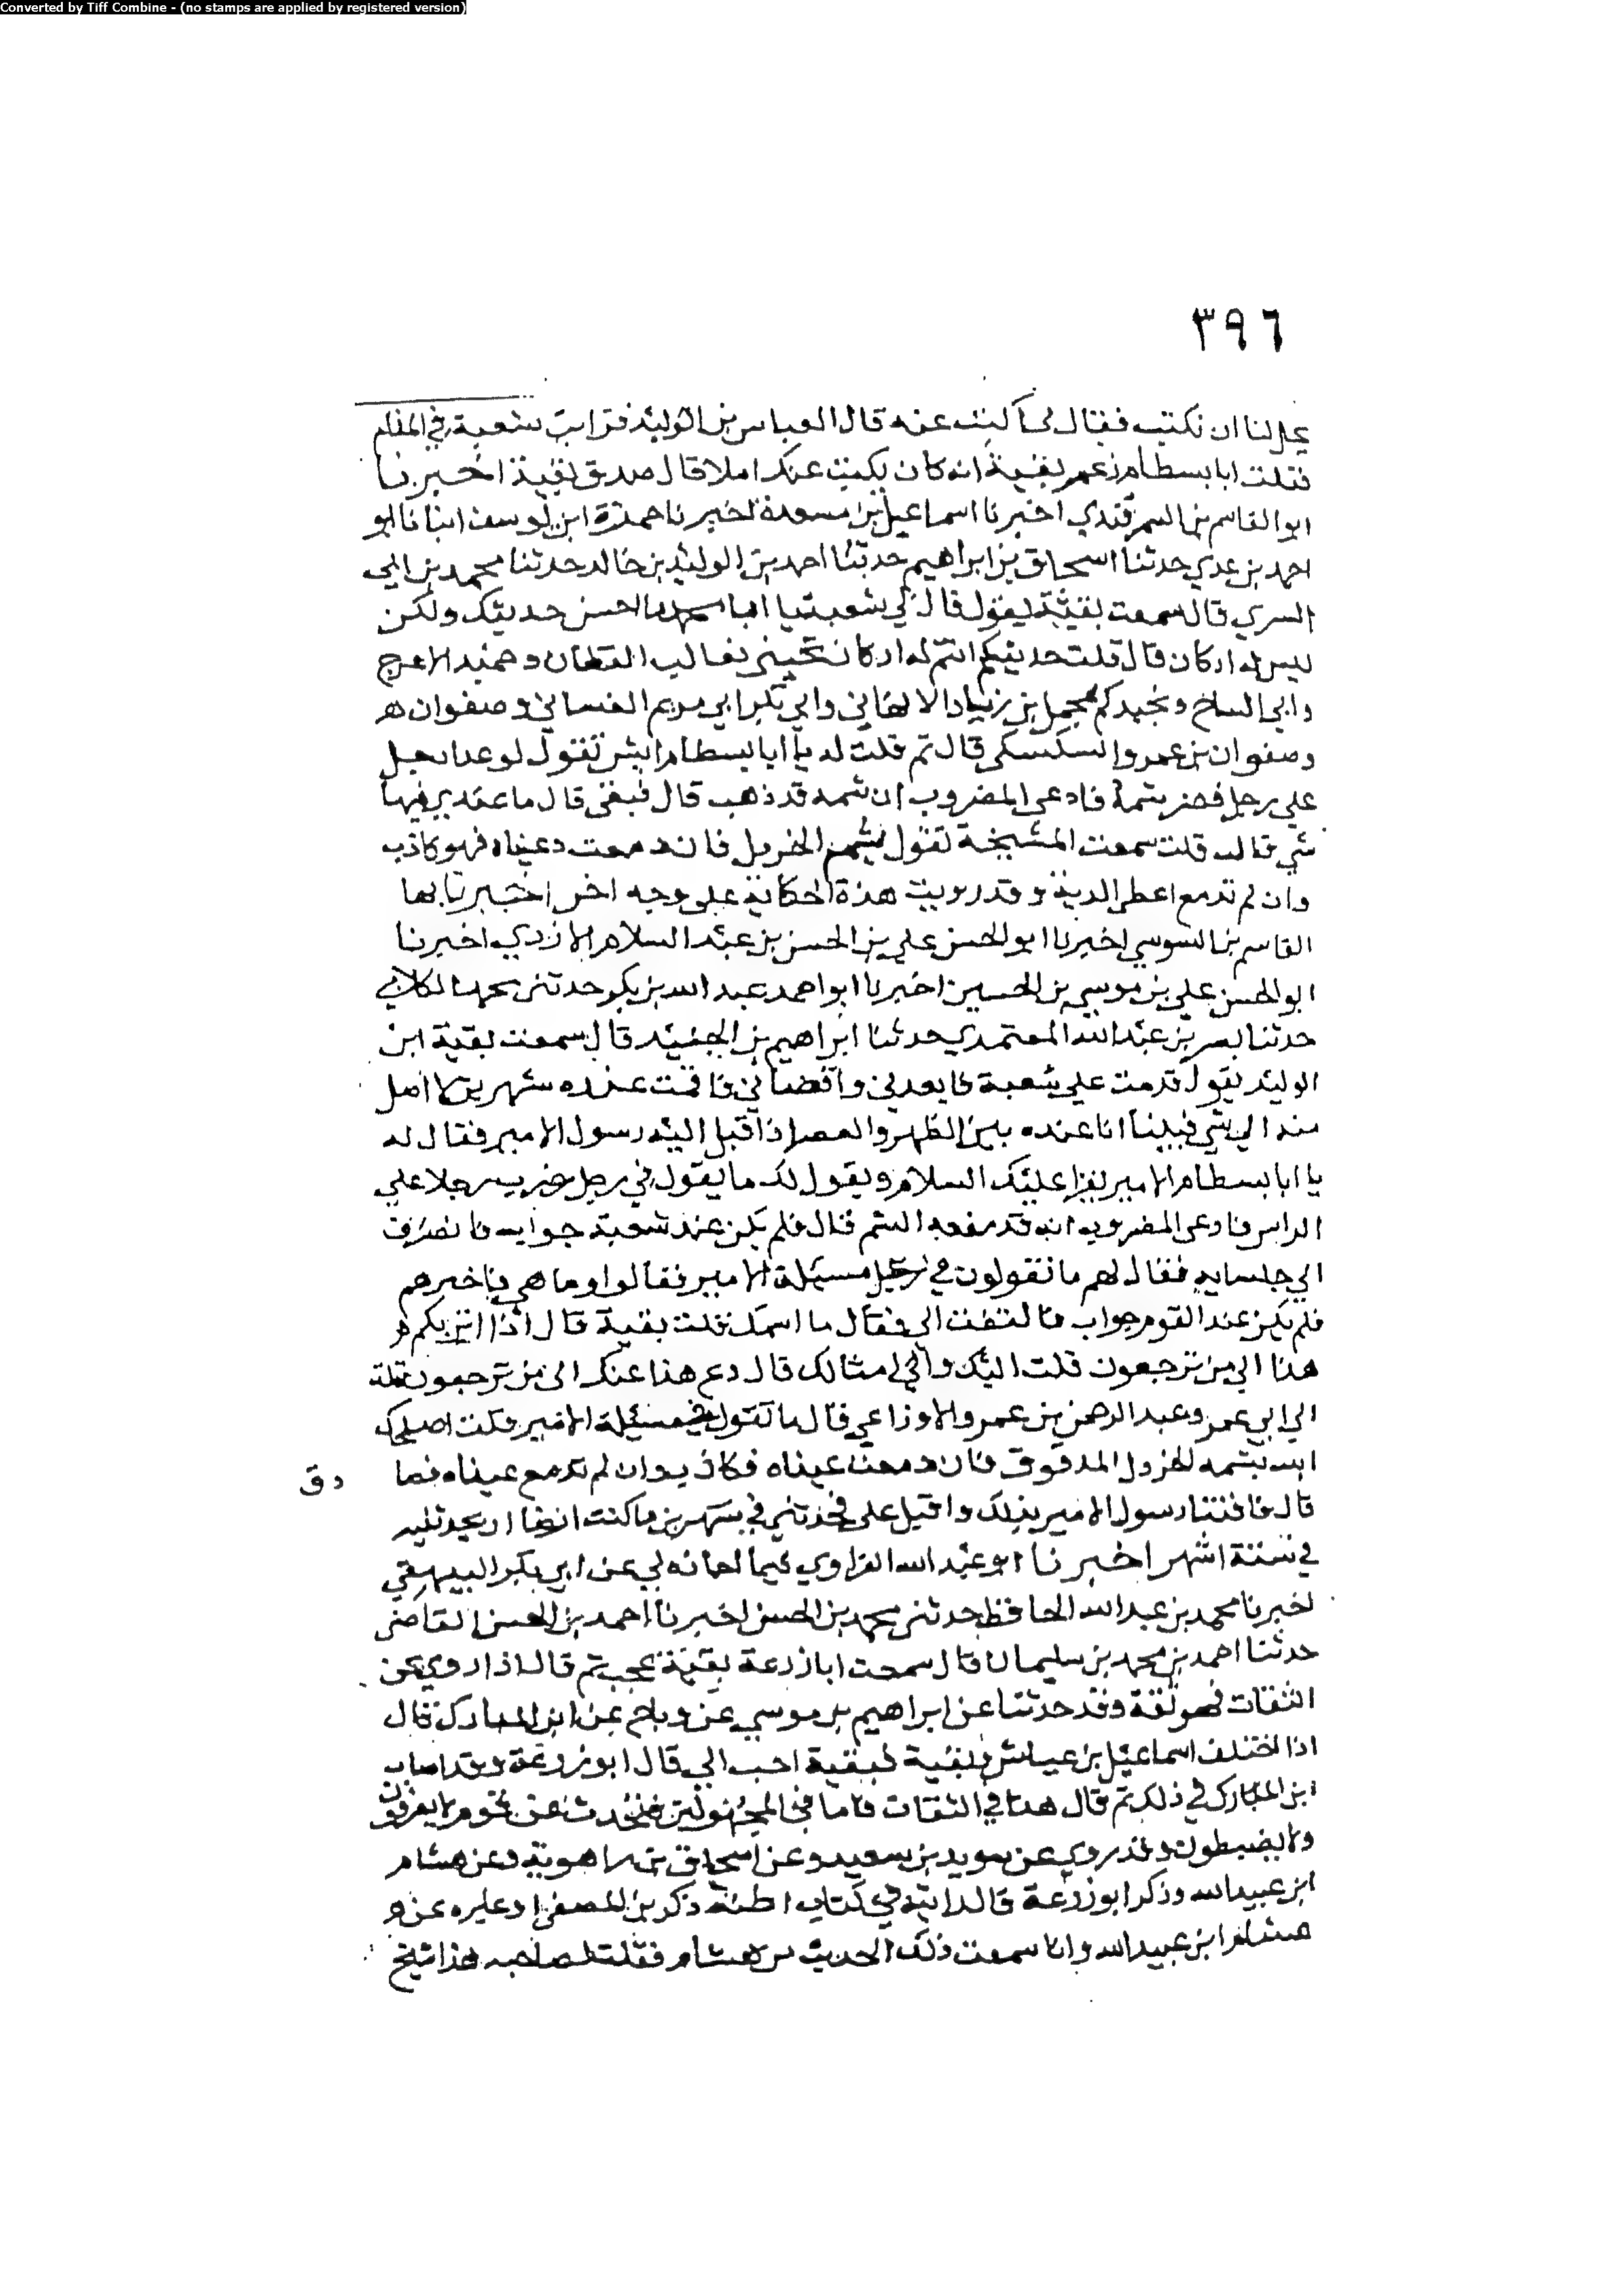 Converted by Tiff Combine - (no stamps are applied by registered version)
٣٩٦
لنا ان نكتب فقال لي اكتب عنه قال العباس بن الوليد فرايت شعبة في المنام
فقلت ابا بسطام زعم بقية انه كان يكتب عنك املا قال صدق بقية اخبرنا
ابو القاسم بن السمرقندي اخبرنا اسماعيل بن مسعدة اخبرنا حمزة ابن يوسف انبانا ابو
احمد بن عدي حدثنا اسحاق بن ابراهيم حدثنا احمد بن الوليد بن خالد حدثنا محمد بن ابي
السري قال سمعت بقية يقول قال لي شعبة يا ابا ما احسن حديثك ولكن
ليس له اركان قال قلت حديثكم انتم له اركان تجيني بغالب القطان وحميد الاعرج
وابي السلخ ونجيدكم بن زياد الالهاني وابي بكر ابي مريم الغساني وصفوان هـ
وصفوان بن عمرو السكسكي قال ثم قلت له يا ابا بسطام ايش تقول لو عدا رجل
علي رجل فضر بشمة فادعى المضروب ان شمه قد ذهب قال فبقى قال ما عنده فيها
شي قال قلت سمعت المشيخة تقول يشمم الخردل فان دمعت دعيناه فهو كاذب
وان لم تدمع اعطى الدية وقد رويت هذة الحكاية على وجه اخر اخبرنا بها
القاسم بن السوسي اخبرنا ابو الحسن علي بن الحسن بن عبد السلام الازدي اخبرنا
ابو الحسن علي بن موسى بن الحسين اخبرنا ابو احمد عبد الله بن بكر حدثني الكلابي
حدثنا بن عبد الله المعتمدي حدثنا ابراهيم بن الجنيد قال سمعت بقية ابن
الوليد يقول قدمت علي شعبة واقصاني فاقمت عنده شهرين لا اصل
منه الي شي فبينا انا عنده بين الظهر والعصر اذ اقبل اليه رسول الامير فقال له
يا ابا بسطام الامير يقرا عليك السلام ويقول لك ما يقول في رجل ضرب رجلا علي
الراس فادعى المضروب انه قد منعه الشم قال فلم يكن عند شعبة جواب فانصرف
الي جلسايه فقال لهم ما تقولون في مسيلة الامير فقالوا وما هي فاخبرهم
فلم يكن عند القوم جواب فالتفت الي فقال ما اسمك قلت بقية قال اذا انزبكم هو
هذا الي من ترجعون قلت اليك والي امثالك قال دع هذا عنك الى من ترجعون قلت
الي ابي عمرو عبد الرحمن بن عمرو الاوزاعي قال ما تقول في مسيلة الامير فقلت اصلحك
الله يشمه الخردل المدقوق فان دمعت عيناه فكاذب وان لم تدمع عيناه فما دق
قال فافتنا رسول الامير بذلك واقبل على فحدثني في شهرين ما كنت ارضا ان يحدثنيه
في ستة اشهر اخبرنا ابو عبد الله الفراوي فيما اجازه لي عن ابي بكر البيهقي
اخبرنا محمد بن عبد الله الحافظ حدثني محمد بن الحسن اخبرنا احمد بن الحسن القاضي
حدثنا احمد بن محمد بن سليمان قال سمعت ابا زرعة بقية عجب ثم قال اذا روى عن
الثقات فهو ثقة وقد حدثنا عن ابراهيم بن موسي عن رباح عن ابن المبارك قال
اذا اختلف اسماعيل بن عياش وبقية فبقية احب الي قال ابو زرعة وقد اصاب
ابن المبارك في ذلك ثم قال هذا في الثقات فاما في المجهولين فيحدث عن قوم لا يعرفون
ولا يضبطون وقد روي عن سويد بن سعيد وعن اسحاق بن راهوية وعن هشام
ابن عبيد الله وذكر ابو زرعة قال رايته في كتاب اظنه ذكر بن المصفى او غيره عن و
هشام ابن عبيد الله وانا سمعت ذلك الحديث من هشام فقلت لصاحبه هذا شيخ